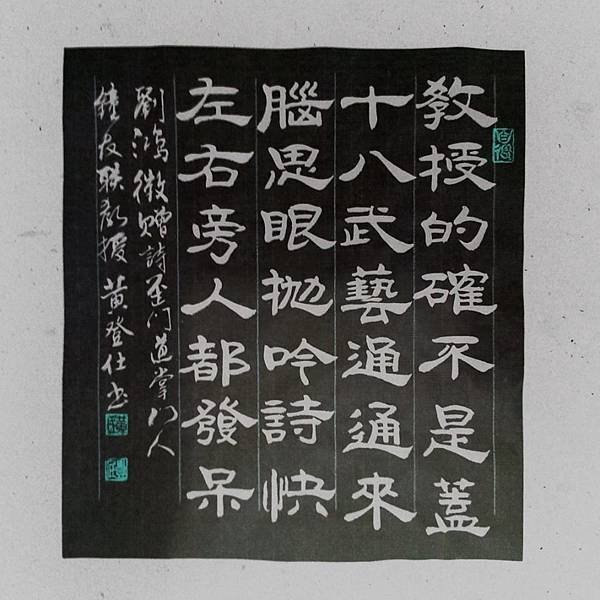 教授的確不是蓋
十八武藝通通來
腦思眼拋吟詩快
左右旁人都發呆
劉鴻徵贈詩歪門道掌門人
鐘友聯教授 黃登仕書